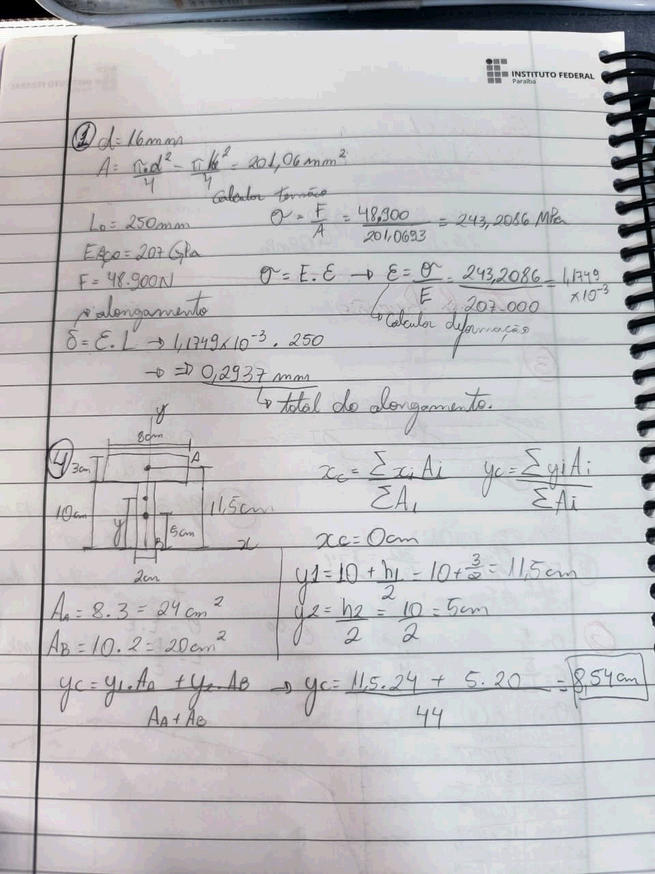 INSTITUTO FEDERAL
Paraíba
① d=16mm
A = π.d²/4 - π16²/4 = 201,06 mm²
Calcular tensão
L₀ = 250mm
σ = F/A = 48.900/201,0693 = 243,2086 MPa
Eaço = 207 GPa
F = 48.900N
σ = E.ε → ε = σ/E = 243,2086/207.000 = 1,1749 ×10⁻³
↳ Calcular deformação
p/ alongamento
δ = ε.L → 1,1749×10⁻³ . 250
→ ⇒ 0,2937 mm
↳ total do alongamento.
④
y
8cm
3cm
A
10cm
y
11,5cm
5cm
B
x
2cm
xc = Σ xi Ai / Σ Ai
yc = Σ yi Ai / Σ Ai
xc = 0cm
y1 = 10 + h1/2 = 10 + 3/2 = 11,5cm
y2 = h2/2 = 10/2 = 5cm
AA = 8.3 = 24 cm²
AB = 10.2 = 20cm²
yc = y1.AA + y2.AB / AA + AB → yc = 11,5.24 + 5.20 / 44 = 8,54cm